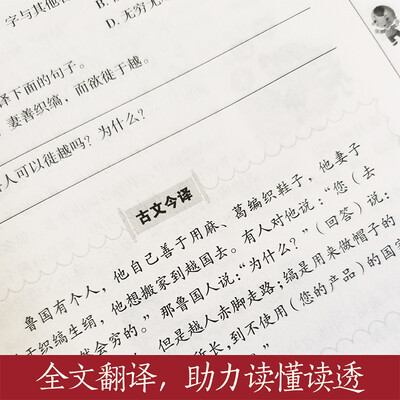 字与其他
D. 无穷无
译下面的句子。
妻善织缟，而欲徙于越。
人可以徙越吗？为什么？
古文今译
鲁国有个人，他自己善于用麻、葛编织鞋子，他妻子
于织缟生绢，他想搬家到越国去。有人对他说：“您（去
然会穷的。”那鲁国人说：“为什么？”（回答）说：
但是越人赤脚走路；缟是用来做帽子的
所长，到不使用（您的产品）的国家
全文翻译，助力读懂读透